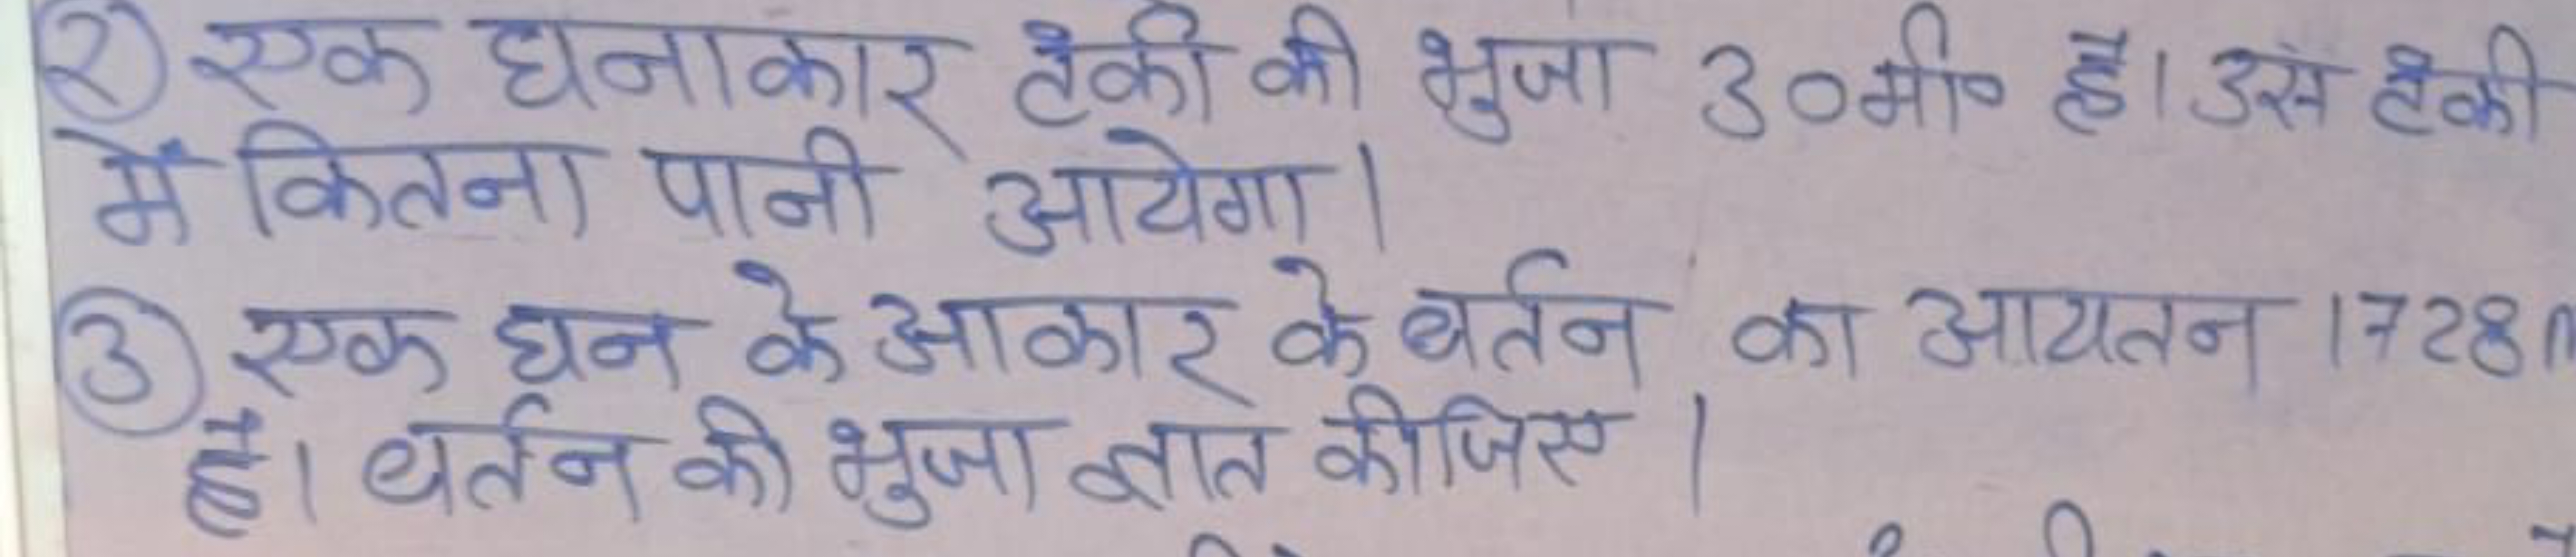 २) एक घनाकार टंकी की भुजा 30मी० है। उस टंकी
में कितना पानी आयेगा।
③ एक घन के आकार के बर्तन का आयतन 1728
है। बर्तन की भुजा ज्ञात कीजिए।